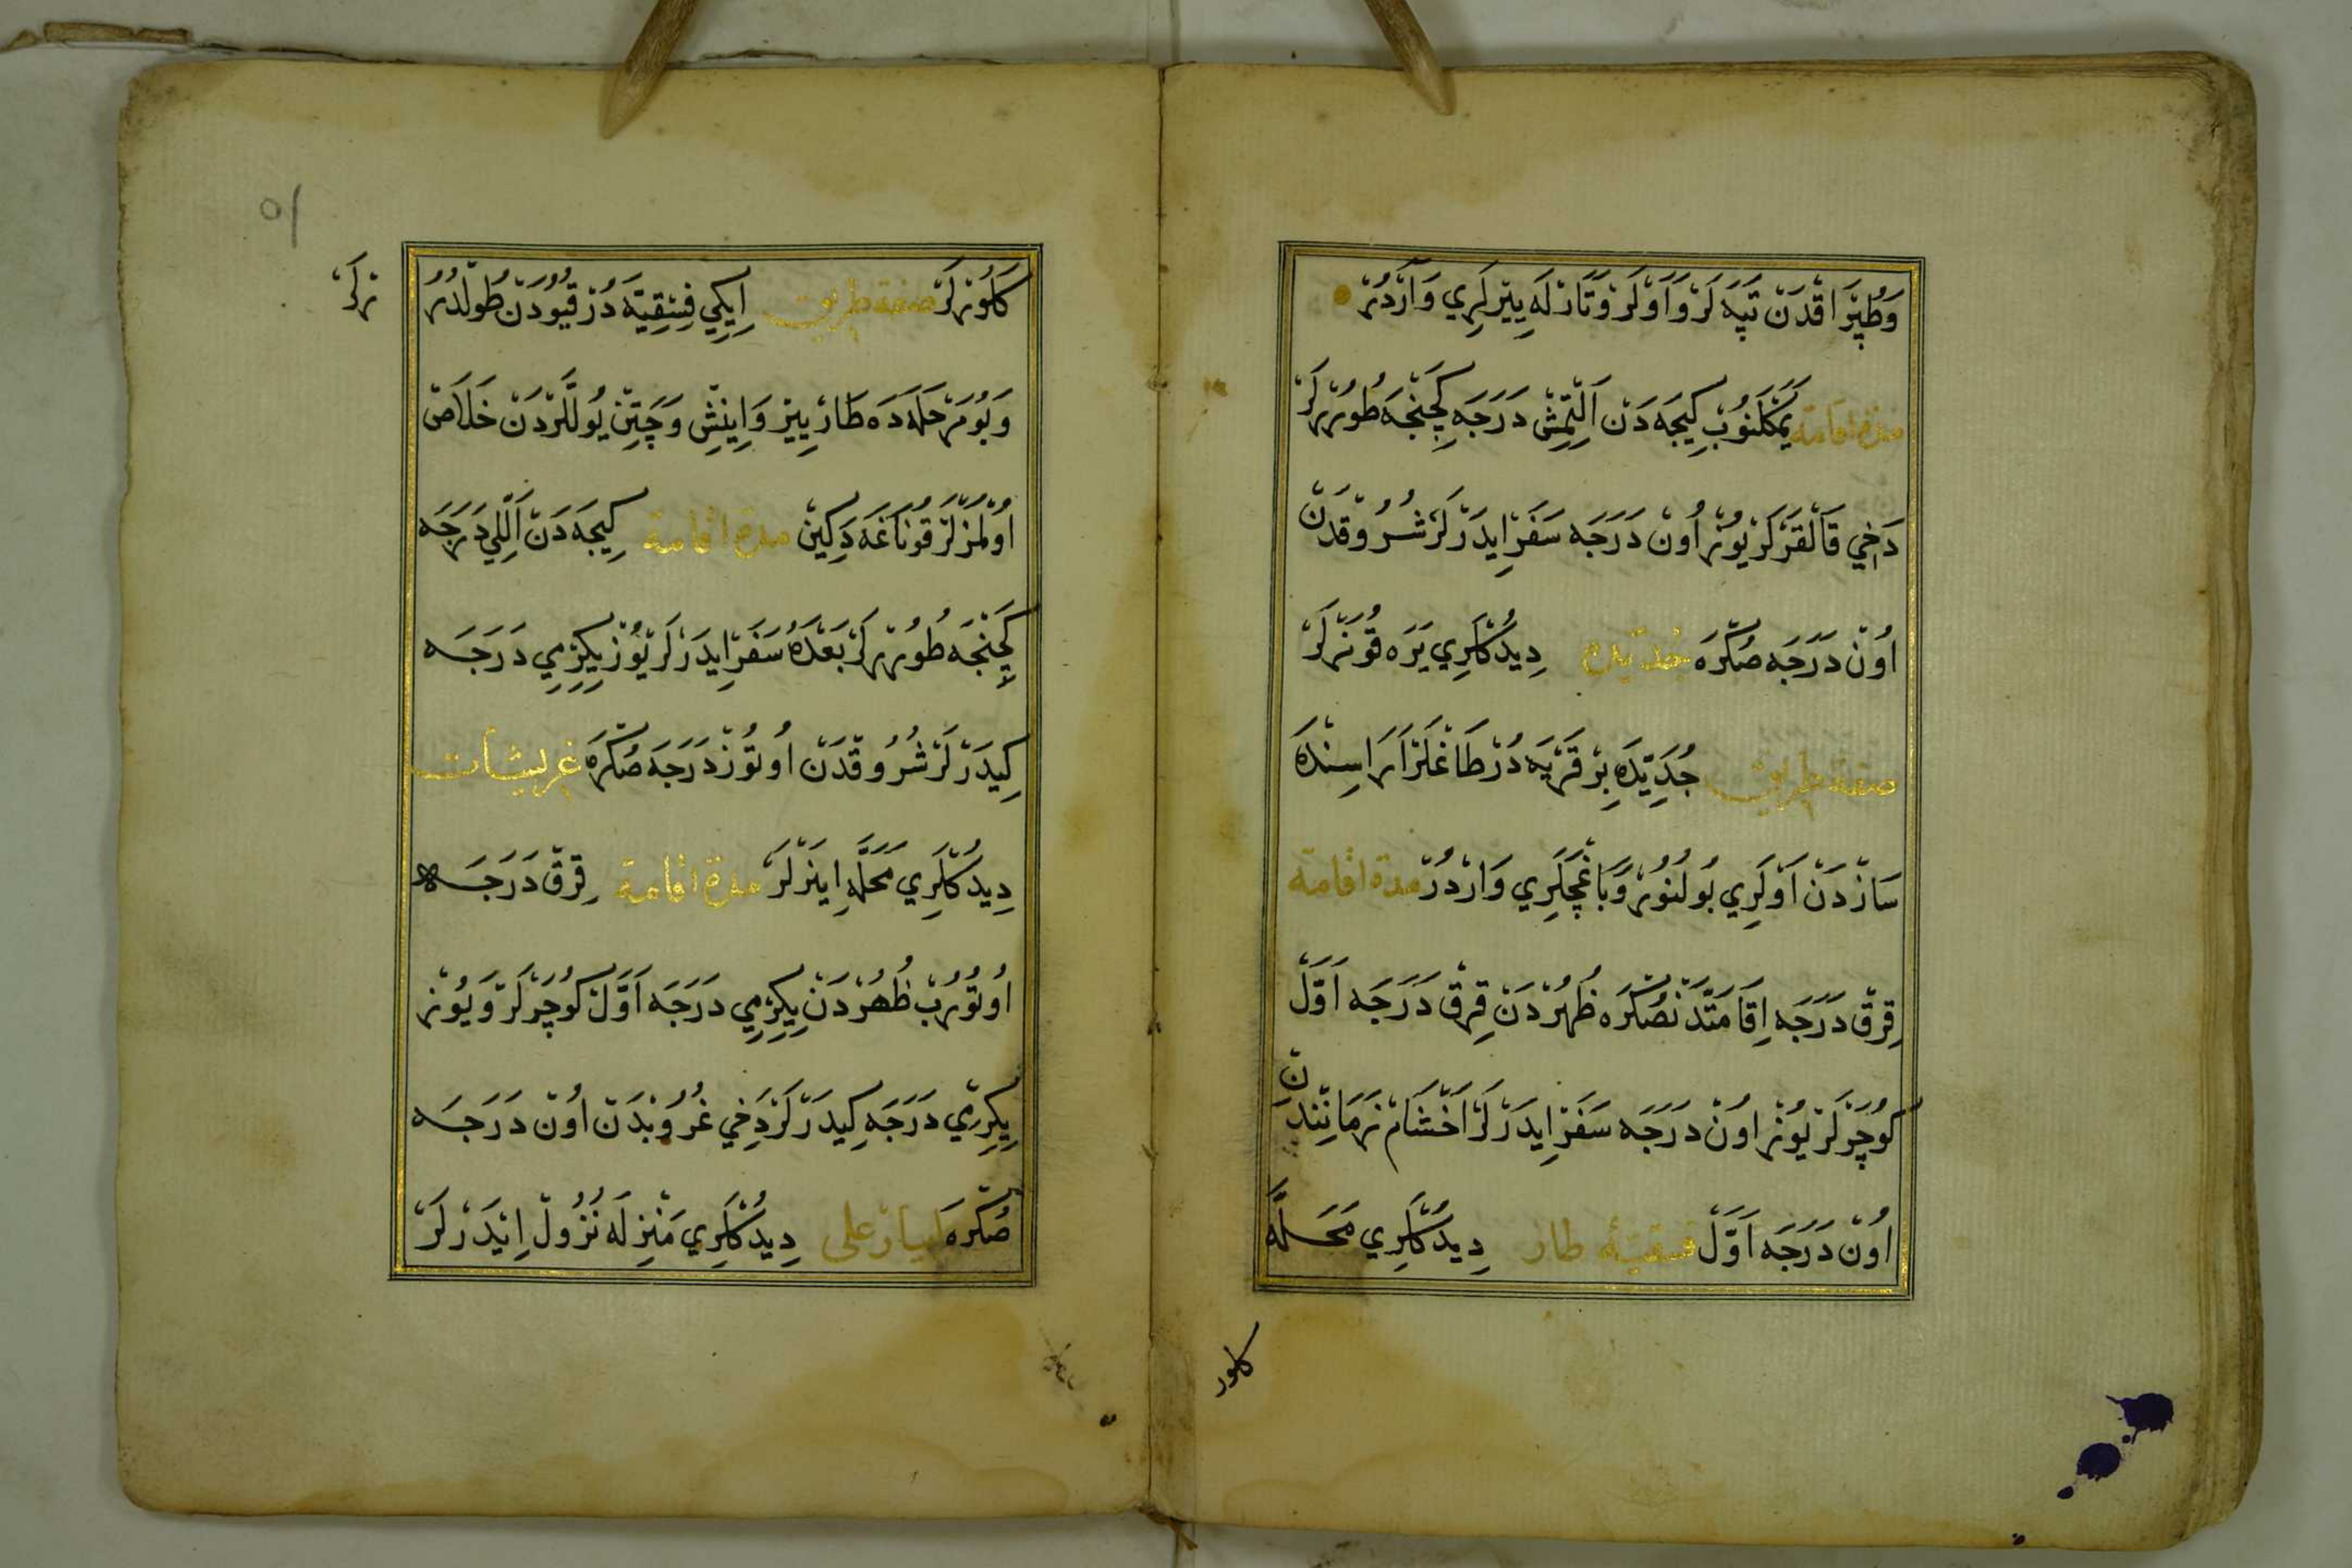 وَطُپْرَاقْدَنْ تَپَهْ لَرْ وَاَوْلَرْ وَتَارْلَهِ يِيْرلَرِي وَارْدُرْ
مدة اقامة يَمَكْلَنُوبْ كِيجَهدَنْ اَلْتْمِشْ دَرَجَهِ كَچِنْجَه طُورُرْلَرْ
دَخِي قَالْقَرْلَرْ يُوزْ اُونْ دَرَجَه سَفَرْ اِيدَرْلَرْ شُرُوقْدَنْ
اُونْ دَرَجَه صُكْرَه جديده دِيدُكْلَرِي يَرَه قُونَرْلَرْ
صفة طريق جُدَيِّدَه بِرْ قَرْيَه دُرْ طَاغْلَرْ اَرَاسِنْدَه
سَازْدَنْ اَوْلَرِي بُولُنُورْ وَبَاغْچَلَرِي وَارْدُرْ مدة اقامة
قِرقْ دَرَجَه اِقَامَتْدَنْصُكْرَه ظُهُرْدَنْ قِرقْ دَرَجَه اَوَّلْ
كُوچَرْلَرْ يُوزْ اُونْ دَرَجَه سَفَرْ اِيدَرْلَرْ اَخْشَامْ نَمَازِنْدَنْ
اُونْ دَرَجَه اَوَّلْ فنقيۀ طار دِيدُكْلَرِي مَحَلَّه
كلور
۱۵
كَلُورْلَرْ صفة طريق اِيكِي فِنِقِيَّه دُرْ قُيُودَنْ طُولْدُرُرْلَرْ
وَبُومَرْحَلَهدَه طَارْ يِيرْ وَاِينِشْ وَچَتِنْ يُوللَّرْدَنْ خَلَاصْ
اُولْمَزْلَرْ قُونَاغَه دَكِينْ مدة اقامة كِيجَهدَنْ اَللِّي دَرَجَه
كَچِنْجَه طُورُرْلَرْ بَعْدَهُ سَفَرْ اِيدَرْلَرْ يُوزْ يِكِرْمِي دَرَجَه
كِيدَرْلَرْ شُرُوقْدَنْ اُوتُوزْ دَرَجَه صُكْرَه غريشات
دِيدُكْلَرِي مَحَلَّهِ اِينَرْلَرْ مدة اقامة قِرقْ دَرَجَه
اُوتُورُبْ ظُهُرْدَنْ يِكِرْمِي دَرَجَه اَوَّلْ كُوچَرْلَرْ وَيُوزْ
يِكِرْمِي دَرَجَهِ كِيدَرْلَرْ دَخِي غُرُوبْدَنْ اُونْ دَرَجَه
صُكْرَه ابيار على دِيدُكْلَرِي مَنْزِلَه نُزُولْ اِيْدَرْلَرْ